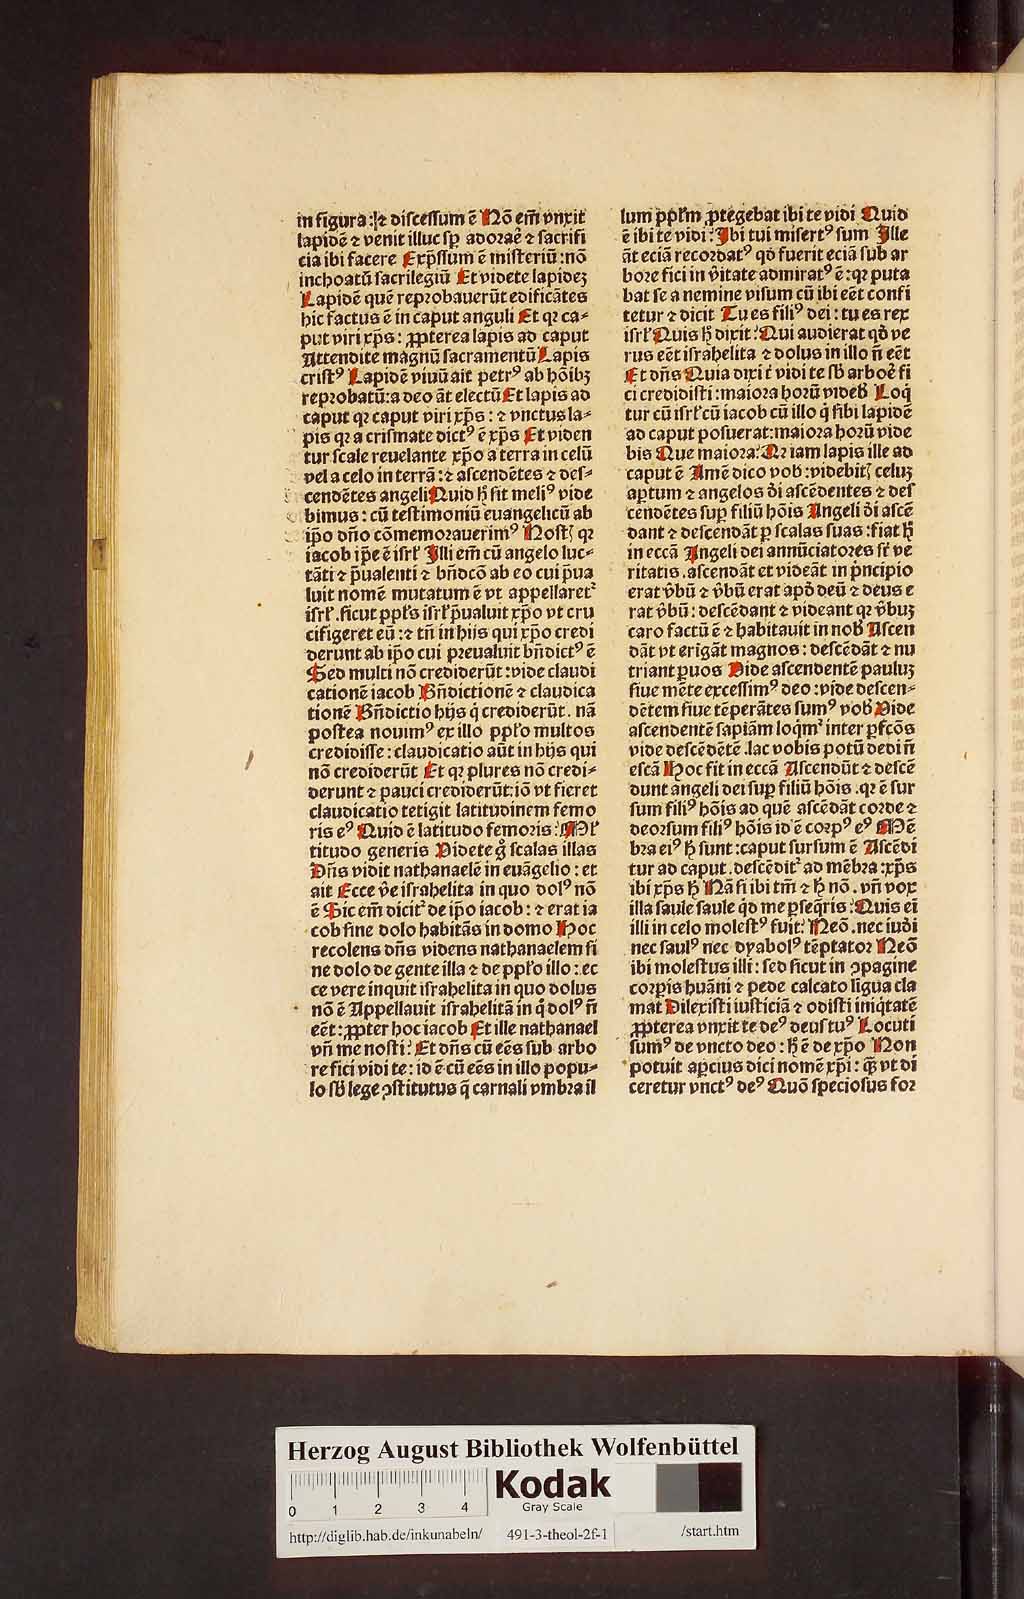 in figura :⁊ discessum ē Nō em̄ vnxit
lapidē ⁊ venit illuc sp̄ adoraē ⁊ sacrifi
cia ibi facere Exp̄ssum ē misteriū : nō
inchoatū sacrilegiū Et videte lapideꝫ
Lapidē quē reprobauerūt edificātes
hic factus ē in caput anguli Et qꝛ ca⸗
put viri xp̄s : ꝓpterea lapis ad caput
Attendite magnū sacramentū Lapis
crist⁹ Lapidē viuū ait petr⁹ ab hōibꝫ
reprobatū : a deo āt electū Et lapis ad
caput qꝛ caput viri xp̄s : ⁊ vnctus la⸗
pis qꝛ a crismate dict⁹ ē xp̄s Et viden
tur scale reuelante xp̄o a terra in celū
vel a celo in terrā : ⁊ ascendētes ⁊ des⸗
cendētes angeli Quid h̄ sit meli⁹ vide
bimus : cū testimoniū euangelicū ab
ip̄o dn̄o cōmemorauerim⁹ Nostꝭ qꝛ
iacob ip̄e ē isrl̄ Illi em̄ cū angelo luc⸗
tāti ⁊ p̄ualenti ⁊ bn̄dcō ab eo cui p̄ua
luit nomē mutatum ē vt appellaret᷑
isrl̄ . sicut ppl̄s isrl̄ p̄ualuit xp̄o vt cru
cifigeret eū : ⁊ tn̄ in hijs qui xp̄o credi
derunt ab ip̄o cui preualuit bn̄dict⁹ ē
Sed multi nō crediderūt : vide claudi
cationē iacob Bn̄dictionē ⁊ claudica
tionē Bn̄dictio hijs q̇ crediderūt . nā
postea nouim⁹ ex illo ppl̄o multos
credidisse : claudicatio aūt in hijs qui
nō crediderūt Et qꝛ plures nō credi⸗
derunt ⁊ pauci crediderūt : iō vt fieret
claudicatio tetigit latitudinem femo
ris e⁹ Quid ē latitudo femoris : Ml̄
titudo generis Videte g̊ scalas illas
Dn̄s vidit nathanaelē in euāgelio : et
ait Ecce v̄e israhelita in quo dol⁹ nō
ē Sic em̄ dicit᷑ de ip̄o iacob : ⁊ erat ia
cob sine dolo habitās in domo Hoc
recolens dn̄s videns nathanaelem si
ne dolo de gente illa ⁊ de ppl̄o illo : ec
ce vere inquit israhelita in quo dolus
nō ē Appellauit israhelitā in q̊ dol⁹ n̄
eēt : ꝓpter hoc iacob Et ille nathanael
vn̄ me nosti : Et dn̄s cū eēs sub arbo
re fici vidi te : id ē cū eēs in illo popu⸗
lo sb̄ lege ꝯstitutus q̄ carnali vmbra il
lum ppl̄m ꝓtegebat ibi te vidi Quid
ē ibi te vidi : Ibi tui misert⁹ sum Ille
āt eciā recordat⁹ qd̄ fuerit eciā sub ar
bore fici in v̄itate admirat⁹ ē : qꝛ puta
bat se a nemine visum cū ibi eēt confi
tetur ⁊ dicit Tu es fili⁹ dei : tu es rex
isrl̄ Quis h̄ dixit : Qui audierat qd̄ ve
rus eēt israhelita ⁊ dolus in illo n̄ eēt
Et dn̄s Quia dixi t̄ vidi te sb̄ arboē fi
ci credidisti : maiora horū videb̄ Loq̄
tur cū isrl̄ cū iacob cū illo q̇ sibi lapidē
ad caput posuerat : maiora horū vide
bis Que maiora : Qꝛ iam lapis ille ad
caput ē Amē dico vob̄ : videbitꝭ celuꝫ
aptum ⁊ angelos d̄i ascēdentes ⁊ des
cendētes sup̄ filiū hōis Angeli d̄i ascē
dant ⁊ descendāt ꝑ scalas suas : fiat h̄
in eccā Angeli dei annūciatores sr̄ ve
ritatis . ascendāt et videāt in pͥncipio
erat v̄bū ⁊ v̄bū erat apd̄ deū ⁊ deus e
rat v̄bū : descēdant ⁊ videant qꝛ v̄buꝫ
caro factū ē ⁊ habitauit in nob̄ Ascen
dāt vt erigāt magnos : descēdāt ⁊ nu
triant ꝑuos Vide ascendentē pauluꝫ
siue mēte excessim⁹ deo : vide descen⸗
dētem siue tēperātes sum⁹ vob̄ Vide
ascendentē sapiām loqm᷑ inter ꝑfcōs
vide descēdētē . lac vobis potū dedi n̄
escā Hoc fit in eccā Ascendūt ⁊ descē
dunt angeli dei sup̄ filiū hōis . qꝛ ē sur
sum fili⁹ hōis ad quē ascēdāt corde ⁊
deorsum fili⁹ hōis id ē corp⁹ e⁹ Mē
bra ei⁹ h̄ sunt : caput sursum ē Ascēdi
tur ad caput . descēdit᷑ ad mēbra : xp̄s
ibi xp̄s h̄ Nā si ibi tm̄ ⁊ h̄ nō . vn̄ vox
illa saule saule qd̄ me ꝑseq̄ris : Quis ei
illi in celo molest⁹ fuit : Neō . nec iudi
nec saul⁹ nec dyabol⁹ tēptator Neō
ibi molestus illi : sed sicut in ꝯpagine
corpis huāni ⁊ pede calcato ligua cla
mat Dilexisti iusticiā ⁊ odisti iniq̇tatē
ꝓpterea vnxit te de⁹ deus tu⁹ Locuti
sum⁹ de vncto deo : h̄ ē de xp̄o Non
potuit apcius dici nomē xp̄i : q̄ꝫ vt di
ceretur vnct⁹ de⁹ Quō speciosus for
Herzog August Bibliothek Wolfenbüttel
0 1 2 3 4
Kodak
Gray Scale
http://diglib.hab.de/inkunabeln/ 491-3-theol-2f-1 /start.htm